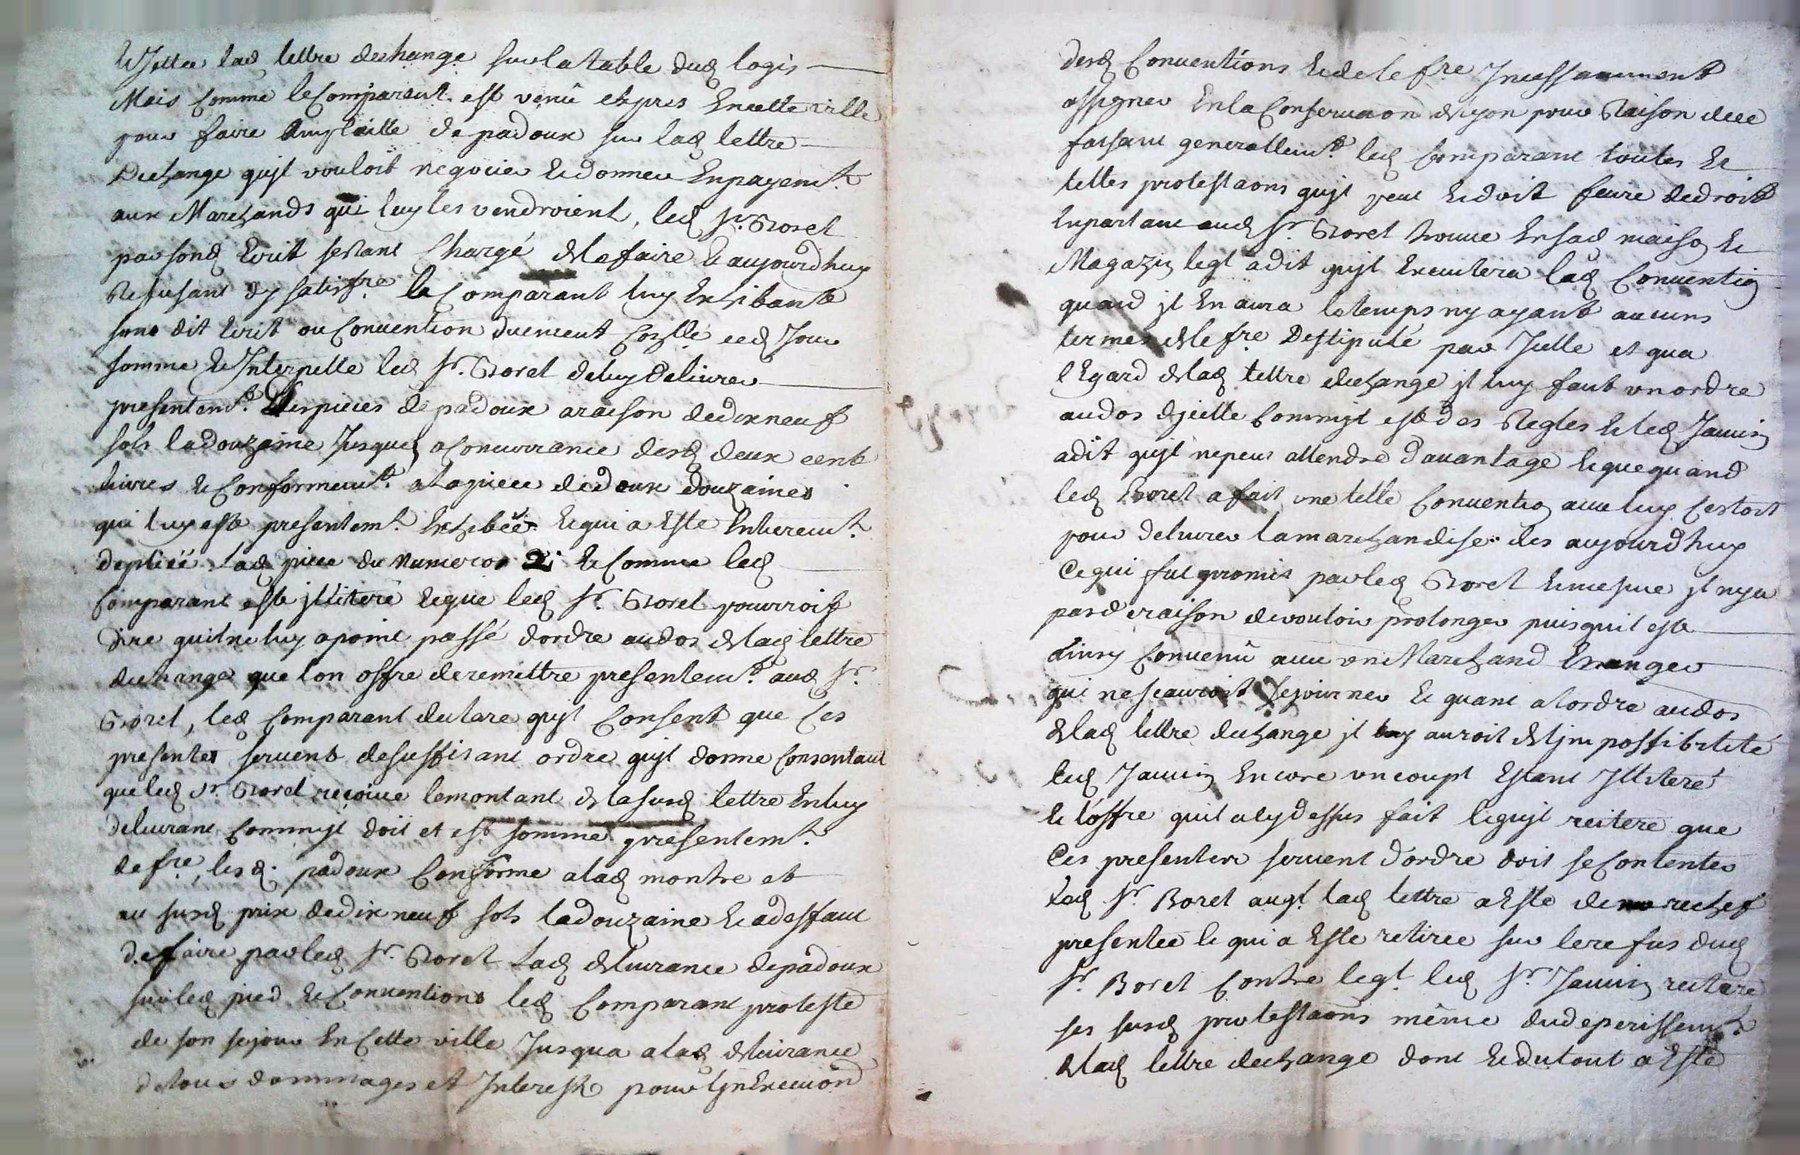 et Jetter lad lettre dechange sur la table dud logis
Mais Comme le Comparant est venu expres En cette ville
pour faire Emplaitte de padoux sur lad lettre
Dechange qujl vouloit negocier et donner En payemt
aux Marchands qui luy les vendroient, led Sr. Boret
par sond Ecrit sestant Chargé de le faire et aujourdhuy
Refusant dy satisfre le Comparant luy Exhibant
sond dit Ecrit ou Convention duement Conllé ced Jour
somme et Jnterpelle led Sr. Boret de luy Delivrer
presentemt. des pieces de padoux a raison de dix neuf
sols la douzaine Jusques a Concurrance desd deux cent
livres et Conformemt. a la piece de deux douzaines
qui luy este presentemt. Exhibée et qui a Este Entieremt.
depliée lad piece du Numeros 2. et Comme led
Comparant este jlliteré et que led Sr. Boret pourroit
dire quil ne luy a point passé dordre au dos de lad lettre
dechange que lon offre de remettre presentemt. aud Sr.
Boret, led Comparant declare qujl Consent que Ces
presentes servent de suffisant ordre qujl donne Consentant
que led Sr. Boret reçoive le montant de la susd lettre En luy
delivrant Commjl doit et est somme presentemt.
de fre, lesd. padoux Conforme a lad montre et
au susd prix de dix neuf sols la douzaine et a deffaut
de faire par led Sr. Boret lad delivrance de padoux
sur led pied et Conventions led Comparant proteste
de son sejour En Cette ville Jusqua a lad delivrance
de tous dommages et Interests pour l'jnExecuon
desd Conventions et de le fre Jncessamment
assigner En la Conservaon de Lyon pour Raison de ce
faisant generallemt. led Comparant toutes et
telles protestaons qujl peut et doit faire de droit
En parlant aud Sr Boret trouve En sad maison et
Magazin leql a dit qujl Executera lad Convention
quand jl En aura le temps ny ayant aucuns
termes de le fre Destipulé par Jcelle et qua
l'Egard de lad lettre dechange jl luy faut un ordre
au dos djcelle Commjl est des Regles et led Jauvin
a dit qujl ne peut attendre d'avantage et que quand
led Boret a fait une telle Convention avec luy Cestoit
pour delivrer la marchandise des aujourdhuy
Ce qui fut promis par led Boret et mesme jl ny a
pas de raison de vouloir prolonger puis quil este
dinsy Convenu avec un Marchand Etranger
qui ne scauroit sejourner et quant a lordre au dos
de lad lettre dechange jl luy auroit de ljmpossibilité
led Jauvin Encore un coupt Estant Jlliteré
et l'offre quil a cy dessus fait et qujl reitere que
Ces presentes servent d'ordre doit se Contenter
led Sr Boret auql. lad lettre a Este de rechef
presentée et qui a Este retirée sur le refus dud
Sr Boret Contre leql. led Sr Jauvin reitere
ses susd protestaons même du deperissemt
de lad lettre dechange dont et du tout a Este